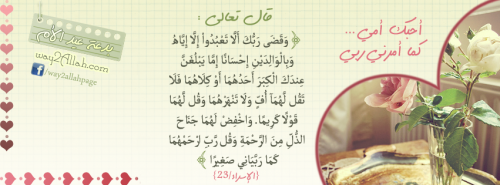 قال تعالى :
﴿ وَقَضَى رَبُّكَ أَلَّا تَعْبُدُوا إِلَّا إِيَّاهُ
وَبِالْوَالِدَيْنِ إِحْسَانًا إِمَّا يَبْلُغَنَّ
عِندَكَ الْكِبَرَ أَحَدُهُمَا أَوْ كِلَاهُمَا فَلَا
تَقُل لَّهُمَا أُفٍّ وَلَا تَنْهَرْهُمَا وَقُل لَّهُمَا
قَوْلًا كَرِيمًا. وَاخْفِضْ لَهُمَا جَنَاحَ
الذُّلِّ مِنَ الرَّحْمَةِ وَقُل رَّبِّ ارْحَمْهُمَا
كَمَا رَبَّيَانِي صَغِيرًا ﴾
{الإسراء/23}
أحبك أمي ...
كما أمرني ربي
way2allah.com
/way2allahpage